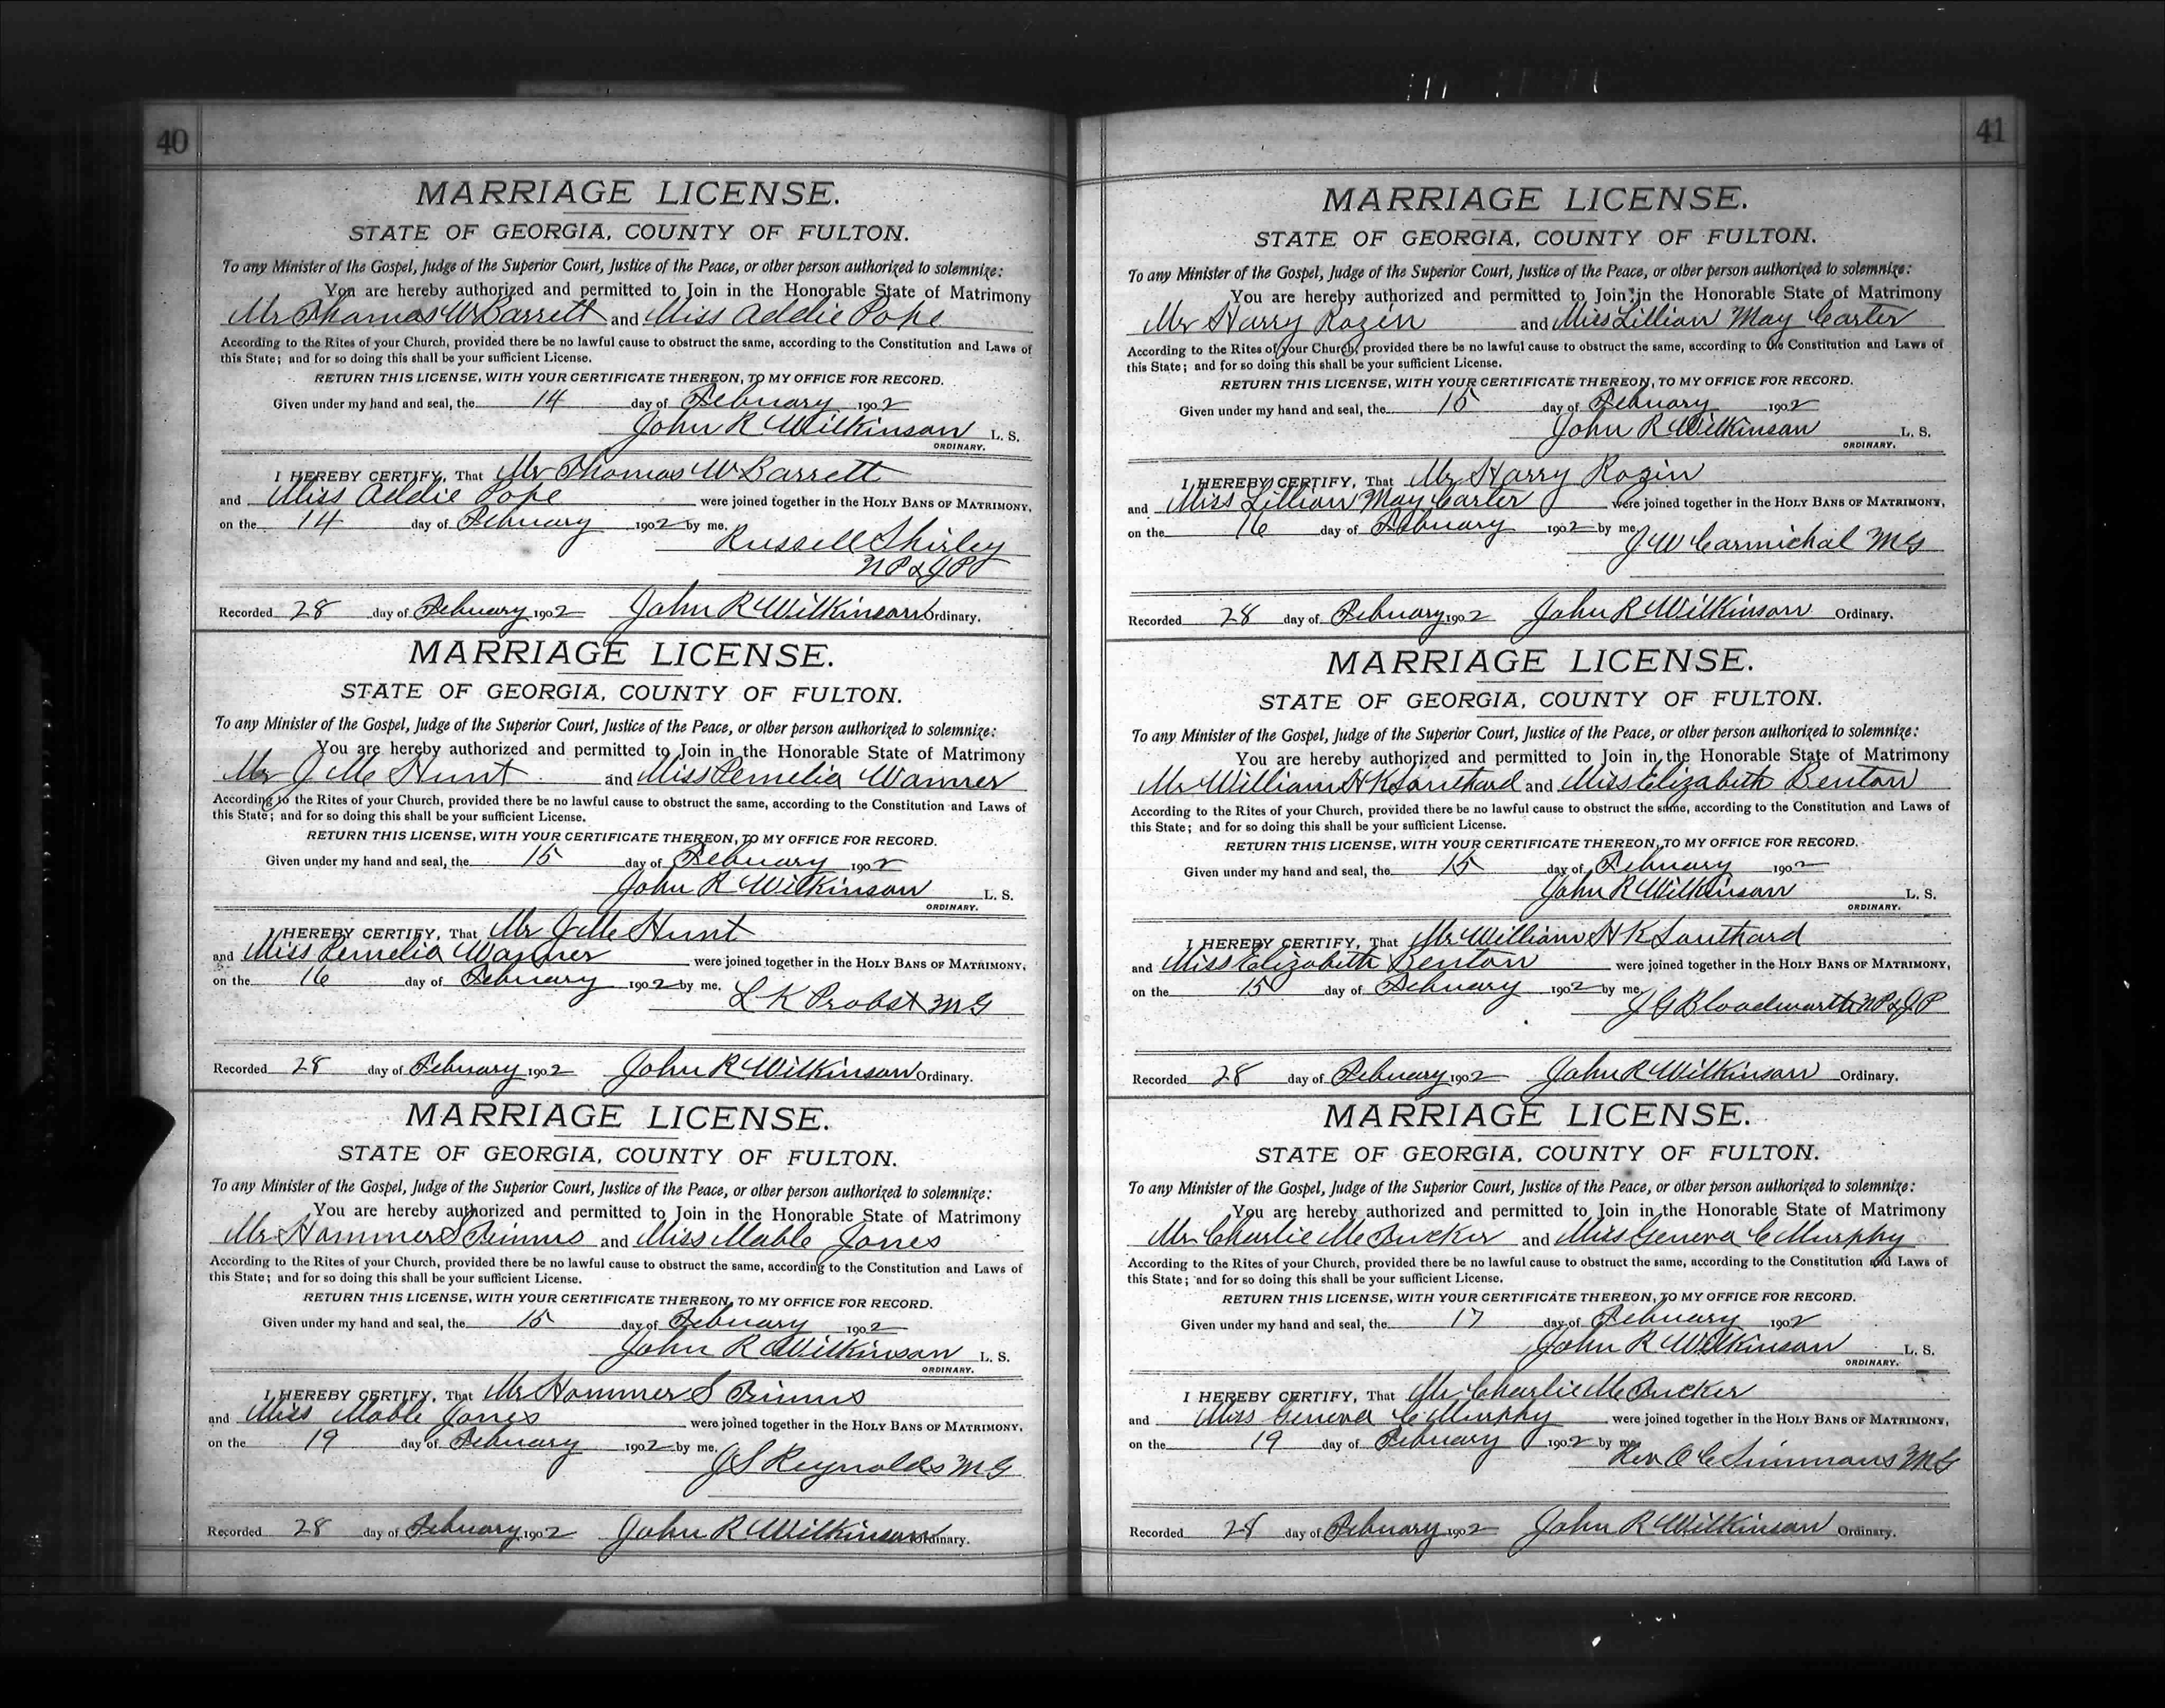 40
MARRIAGE LICENSE.
STATE OF GEORGIA, COUNTY OF FULTON.
To any Minister of the Gospel, Judge of the Superior Court, Justice of the Peace, or other person authorized to solemnize:
You are hereby authorized and permitted to Join in the Honorable State of Matrimony
Mr Thomas W Barrett and Miss Addie Pope
According to the Rites of your Church, provided there be no lawful cause to obstruct the same, according to the Constitution and Laws of
this State; and for so doing this shall be your sufficient License.
RETURN THIS LICENSE, WITH YOUR CERTIFICATE THEREON, TO MY OFFICE FOR RECORD.
Given under my hand and seal, the 14 day of February 1902
John R Wilkinson L. S.
ORDINARY.
I HEREBY CERTIFY, That Mr Thomas W Barrett
and Miss Addie Pope were joined together in the HOLY BANS OF MATRIMONY,
on the 14 day of February 1902 by me.
Russell Shirley
NP & JP
Recorded 28 day of February 1902 John R Wilkinson Ordinary.
MARRIAGE LICENSE.
STATE OF GEORGIA, COUNTY OF FULTON.
To any Minister of the Gospel, Judge of the Superior Court, Justice of the Peace, or other person authorized to solemnize:
You are hereby authorized and permitted to Join in the Honorable State of Matrimony
Mr J M Hunt and Miss Pemelia Warner
According to the Rites of your Church, provided there be no lawful cause to obstruct the same, according to the Constitution and Laws of
this State; and for so doing this shall be your sufficient License.
RETURN THIS LICENSE, WITH YOUR CERTIFICATE THEREON, TO MY OFFICE FOR RECORD.
Given under my hand and seal, the 15 day of February 1902
John R Wilkinson L. S.
ORDINARY.
I HEREBY CERTIFY, That Mr J M Hunt
and Miss Pemelia Warner were joined together in the HOLY BANS OF MATRIMONY,
on the 16 day of February 1902 by me.
L K Probst MG
Recorded 28 day of February 1902 John R Wilkinson Ordinary.
MARRIAGE LICENSE.
STATE OF GEORGIA, COUNTY OF FULTON.
To any Minister of the Gospel, Judge of the Superior Court, Justice of the Peace, or other person authorized to solemnize:
You are hereby authorized and permitted to Join in the Honorable State of Matrimony
Mr Hommer S Binns and Miss Mable Jones
According to the Rites of your Church, provided there be no lawful cause to obstruct the same, according to the Constitution and Laws of
this State; and for so doing this shall be your sufficient License.
RETURN THIS LICENSE, WITH YOUR CERTIFICATE THEREON, TO MY OFFICE FOR RECORD.
Given under my hand and seal, the 15 day of February 1902
John R Wilkinson L. S.
ORDINARY.
I HEREBY CERTIFY, That Mr Hommer S Binns
and Miss Mable Jones were joined together in the HOLY BANS OF MATRIMONY,
on the 19 day of February 1902 by me.
J S Reynolds MG
Recorded 28 day of February 1902 John R Wilkinson Ordinary.
41
MARRIAGE LICENSE.
STATE OF GEORGIA, COUNTY OF FULTON.
To any Minister of the Gospel, Judge of the Superior Court, Justice of the Peace, or other person authorized to solemnize:
You are hereby authorized and permitted to Join in the Honorable State of Matrimony
Mr Harry Rozin and Miss Lillian May Carter
According to the Rites of your Church, provided there be no lawful cause to obstruct the same, according to the Constitution and Laws of
this State; and for so doing this shall be your sufficient License.
RETURN THIS LICENSE, WITH YOUR CERTIFICATE THEREON, TO MY OFFICE FOR RECORD.
Given under my hand and seal, the 15 day of February 1902
John R Wilkinson L. S.
ORDINARY.
I HEREBY CERTIFY, That Mr Harry Rozin
and Miss Lillian May Carter were joined together in the HOLY BANS OF MATRIMONY,
on the 16 day of February 1902 by me
J W Carmichal MG
Recorded 28 day of February 1902 John R Wilkinson Ordinary.
MARRIAGE LICENSE.
STATE OF GEORGIA, COUNTY OF FULTON.
To any Minister of the Gospel, Judge of the Superior Court, Justice of the Peace, or other person authorized to solemnize:
You are hereby authorized and permitted to Join in the Honorable State of Matrimony
Mr William H K Southard and Miss Elizabeth Benton
According to the Rites of your Church, provided there be no lawful cause to obstruct the same, according to the Constitution and Laws of
this State; and for so doing this shall be your sufficient License.
RETURN THIS LICENSE, WITH YOUR CERTIFICATE THEREON, TO MY OFFICE FOR RECORD.
Given under my hand and seal, the 15 day of February 1902
John R Wilkinson L. S.
ORDINARY.
I HEREBY CERTIFY, That Mr William H K Southard
and Miss Elizabeth Benton were joined together in the HOLY BANS OF MATRIMONY,
on the 15 day of February 1902 by me
J G Bloodworth NP & JP
Recorded 28 day of February 1902 John R Wilkinson Ordinary.
MARRIAGE LICENSE.
STATE OF GEORGIA, COUNTY OF FULTON.
To any Minister of the Gospel, Judge of the Superior Court, Justice of the Peace, or other person authorized to solemnize:
You are hereby authorized and permitted to Join in the Honorable State of Matrimony
Mr Charlie M Tucker and Miss Geneva C Murphy
According to the Rites of your Church, provided there be no lawful cause to obstruct the same, according to the Constitution and Laws of
this State; and for so doing this shall be your sufficient License.
RETURN THIS LICENSE, WITH YOUR CERTIFICATE THEREON, TO MY OFFICE FOR RECORD.
Given under my hand and seal, the 17 day of February 1902
John R Wilkinson L. S.
ORDINARY.
I HEREBY CERTIFY, That Mr Charlie M Tucker
and Miss Geneva C Murphy were joined together in the HOLY BANS OF MATRIMONY,
on the 19 day of February 1902 by me
Rev O C Simmons MG
Recorded 28 day of February 1902 John R Wilkinson Ordinary.